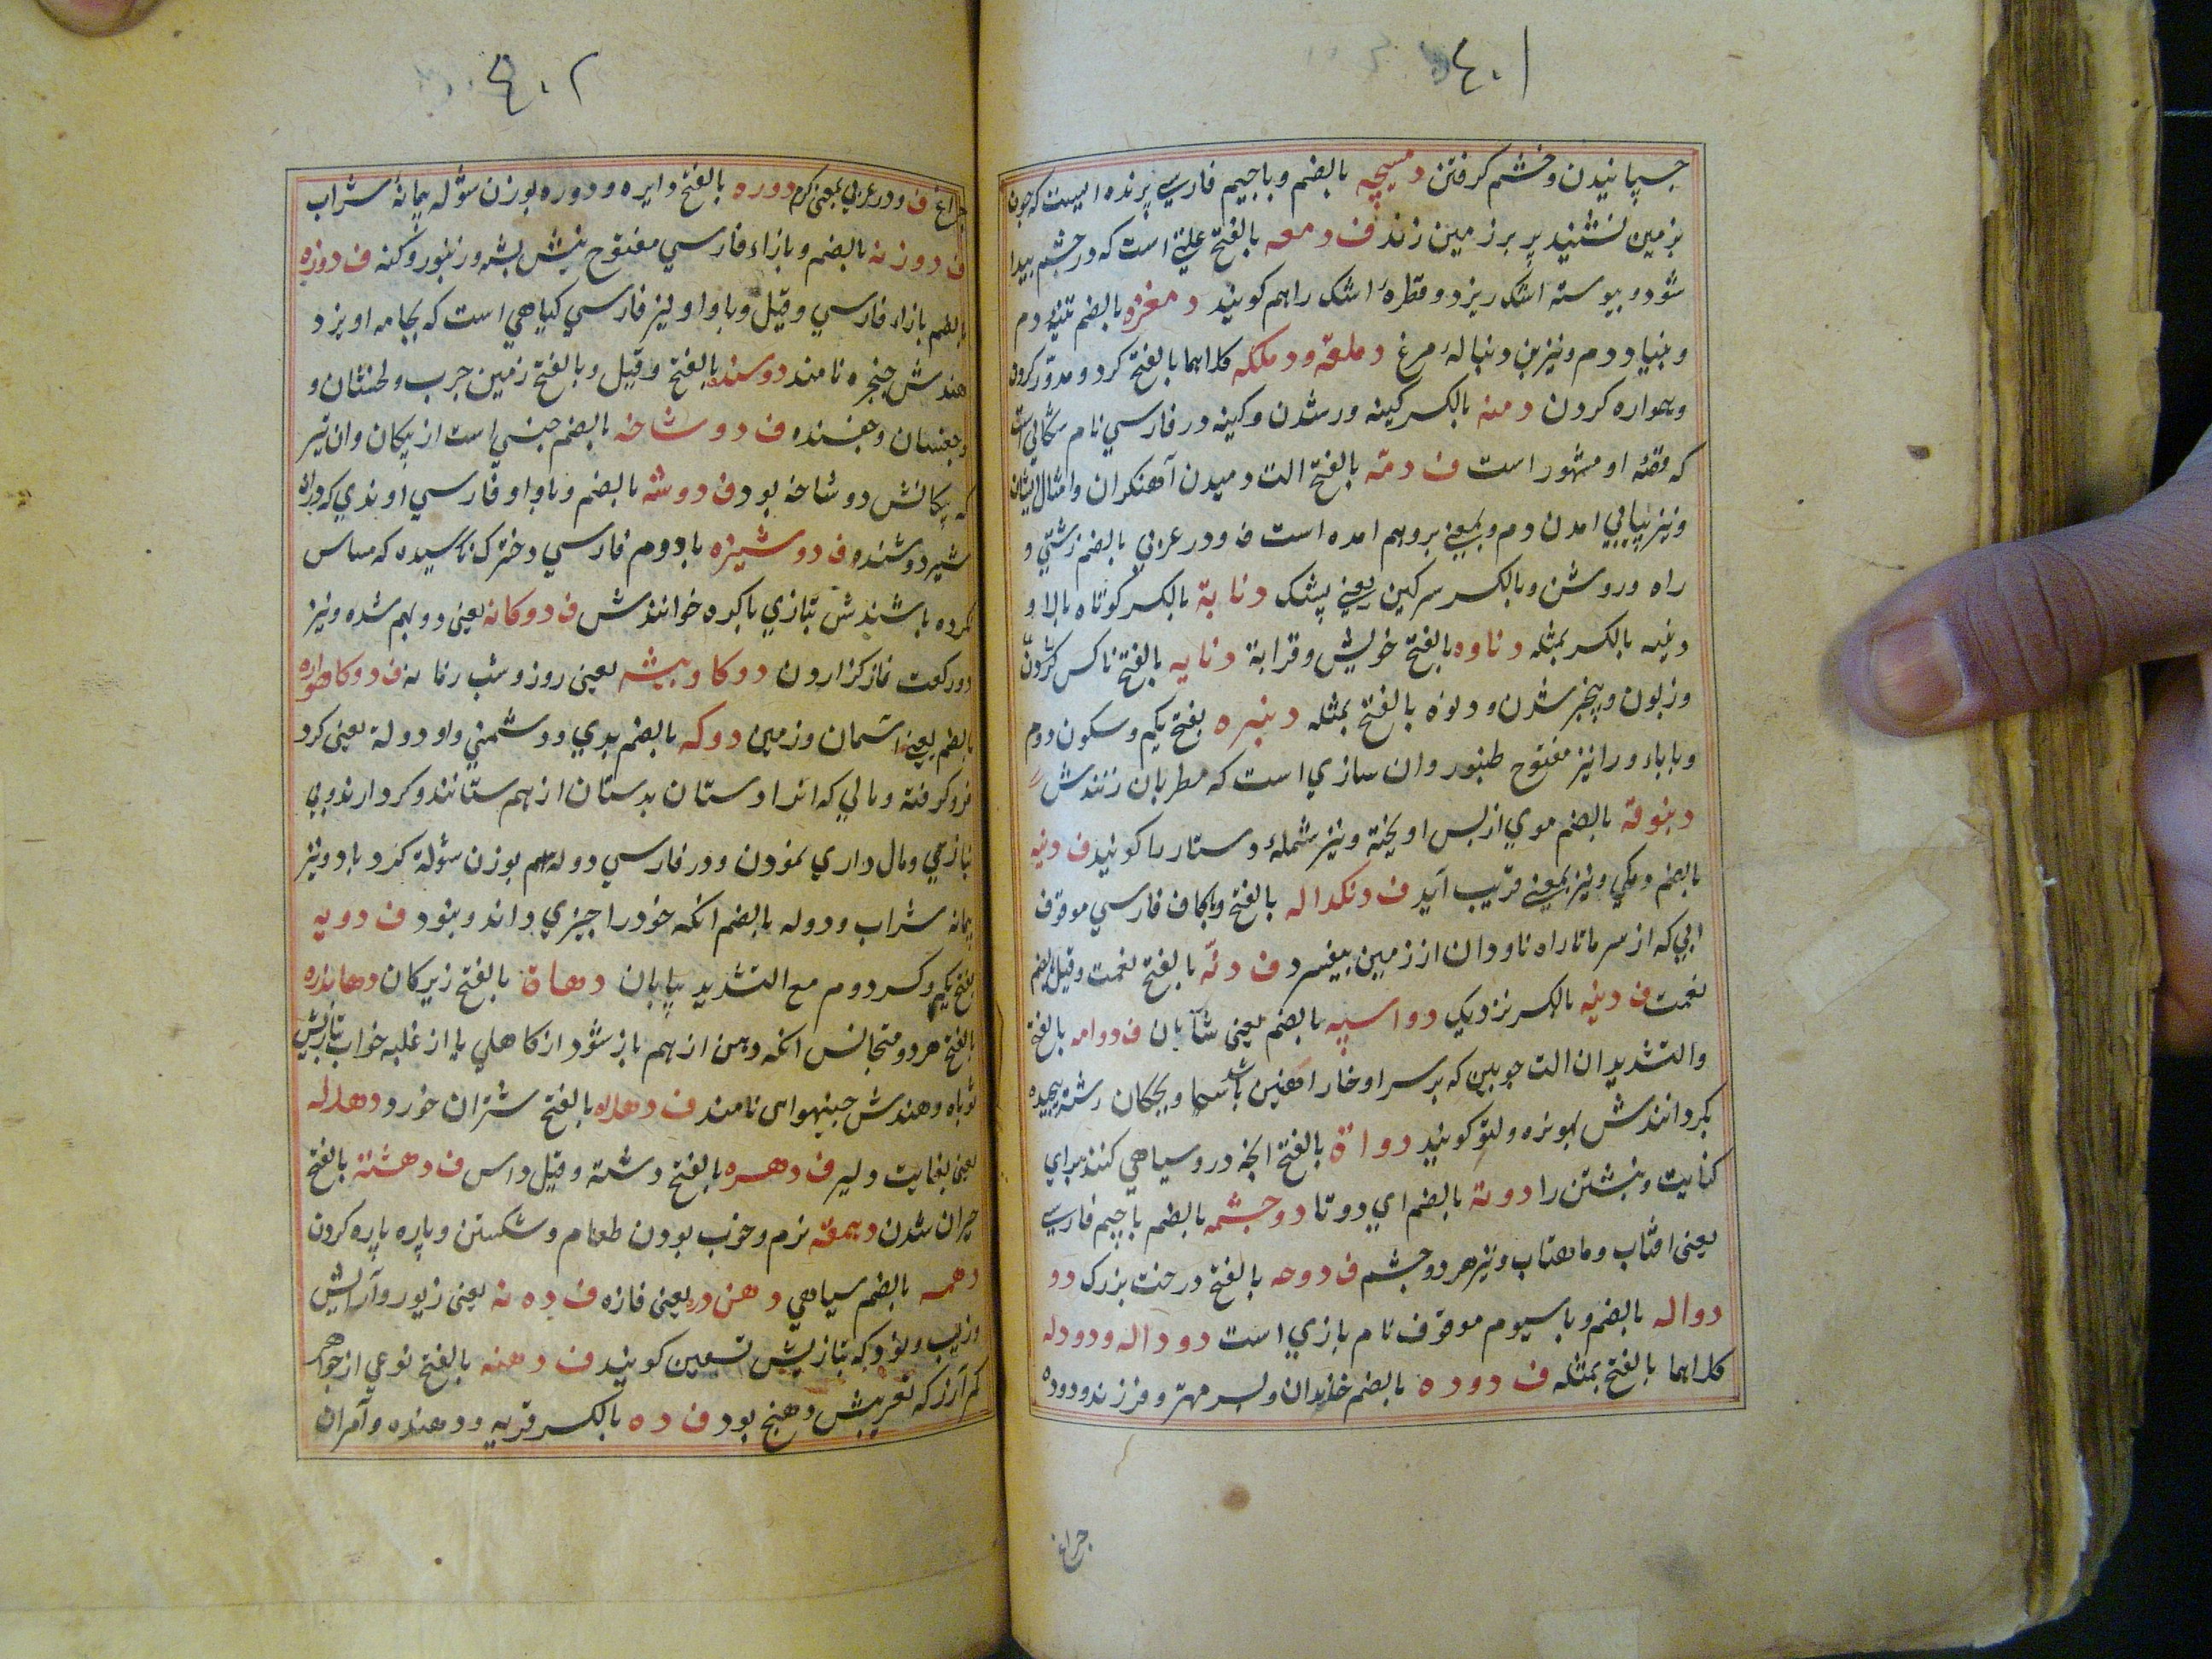 ٤٠١
جسپانیدن و خشم کرفتن دمسیچه بالضم وباجیم فارسی پرنده ایست که چون
بزمین نشیند پر برزمین زند ف دمعه بالفتح علتی است که در چشم پیدا
شود و پیوسته اشک ریزد وقطرهٔ اشک راهم کویند دمغزه بالضم تنهٔ دم
وبنیاد دم ونیزبن دنبالهٔ مرغ دملقة ودملکه کلاهما بالفتح کرد ومدور کردن
وهمواره کردن دمنه بالکسر کینه ورشدن وکینه در فارسي نام شکالی است
که قصّهٔ او مشهور است ف دمّه بالفتح الت دمیدن آهنکران وامثال ایشان
ونیز پیاپی امدن دم وبمعنی بروهم امده است ف ودر عربي بالضم زشتي و
راه وروشن وبالکسر سرکین یعني پشک دنابة بالکسر کوتاه بالا و
دنبه بالکسر بمثله دناوه بالفتح خویش وقرابة دنایه بالفتح ناکس شدن
وزبون وپیخبر شدن ودنوة بالفتح بمثله دنبره بفتح یکم وسکون دوم
وباباء ورا نیز مفتوح طنبور وان سازي است که مطربان زنندش
دنبوقة بالضم موي ازپس اویخته ونیز شملهٔ دستار را کویند ف دنیه
بالضم دمکي ونیز بمعنی قریب آید ف دنکداله بالفتح وبکاف فارسي موقوف
ابي که از سرما تاراه ناودان از زمین بیفسرد ف دنّه بالفتح نغمت وقیل بالضم
نغمت ف دینه بالکسر نزدیک دواسپه بالضم یعني شتابان ف دوامه بالفتح
والتشدید ان الت چوبین که بر سر اوخار اهنین باشد سما وبچکان رشته پیچیده
بکردانندش بهونره ولتو کویند دواة بالفتح انچه درو سیاهي کنند برای
کتابت ونبشتن را دوته بالضم اي دوتا دوچشمه بالضم باچیم فارسي
یعنی افتاب وماهتاب ونیزهر دو چشم ف دوحه بالفتح درخت بزرک دو
دواله بالضم وباسیوم موقوف نام بازي است دوداله ودودله
کلاهما بالفتح بمثله ف دوده بالضم خاندان وپسر مهتر وفرزند ودوده
چراغ
٤٠٢
چراغ ف ودر عربي بمعنی کرم دوره بالفتح دایره ودوره بوزن سؤله پیمانهٔ شراب
ف دوزنه بالضم وبازاء فارسي مفتوح نیش پشه وزنبور وکنه ف دوزه
بالضم بازاء فارسي وقیل وباواو نیز فارسي کیاهي است که بجامه اویزد
هندش چنجره نامند دوسنده بالفتح وقیل وبالفتح زمین چرب ولخشان و
وچفسان وچفسنده ف دوشاخه بالضم جنسي است از پیکان وان تیر
که پیکانش دوشاخه بود ف دوشه بالضم وباواو فارسي اوندي که دران
شیر دوشنده ف دوشیزه بادوم فارسي دخترک نارسیده که مساس
نکرده باشندش بتازي باکره خوانندش ف دوکانه یعنی دوبهم شده ونیز
دورکعت نماز کزاردن دوکاوبیشه یعنی روز وشب رمانه ف دوکاهواره
بالضم یعنی اسمان وزمین دوکه بالضم بدي ودشمني واو دولة یعنی کرد
فروکرفته ومالي که انرا دستان بدستان ازهم ستانند وکردارند وبي
نیازي ومال داري نمودن ودر فارسي دوله هم بوزن سؤله کرد باد ونیز
پیمانه شراب ودوله بالضم انکه خود را چیزي داند ونبود ف دویه
بفتح یکم وکسر دوم مع التشدید بیابان دهاة بالفتح زیرکان دهاندره
بالفتح هردو متجانس انکه دهن ازهم بازشود ازکاهلي یا از غلبه خواب بتازیش
ثوباه وهندش جنیهوای نامند ف دهداه بالفتح شتران خورد ودهدله
یعنی بغایت دلیر ف دهره بالفتح دشته وقیل داس ف دهشة بالفتح
حیران شدن دهمقه نرم وخوب بودن طعام وشکستن وپاره پاره کردن
دهمه بالضم سیاهي دهن دره یعنی فازه ف ده نه یعنی زیور وآرایش
وزیب وبود که بتازیش تسعین کویند ف دهنه بالفتح نوعی از جواهر
کم آرز که تعریبش دهنج بود ف ده بالکسر قریه ودهنده وآمران